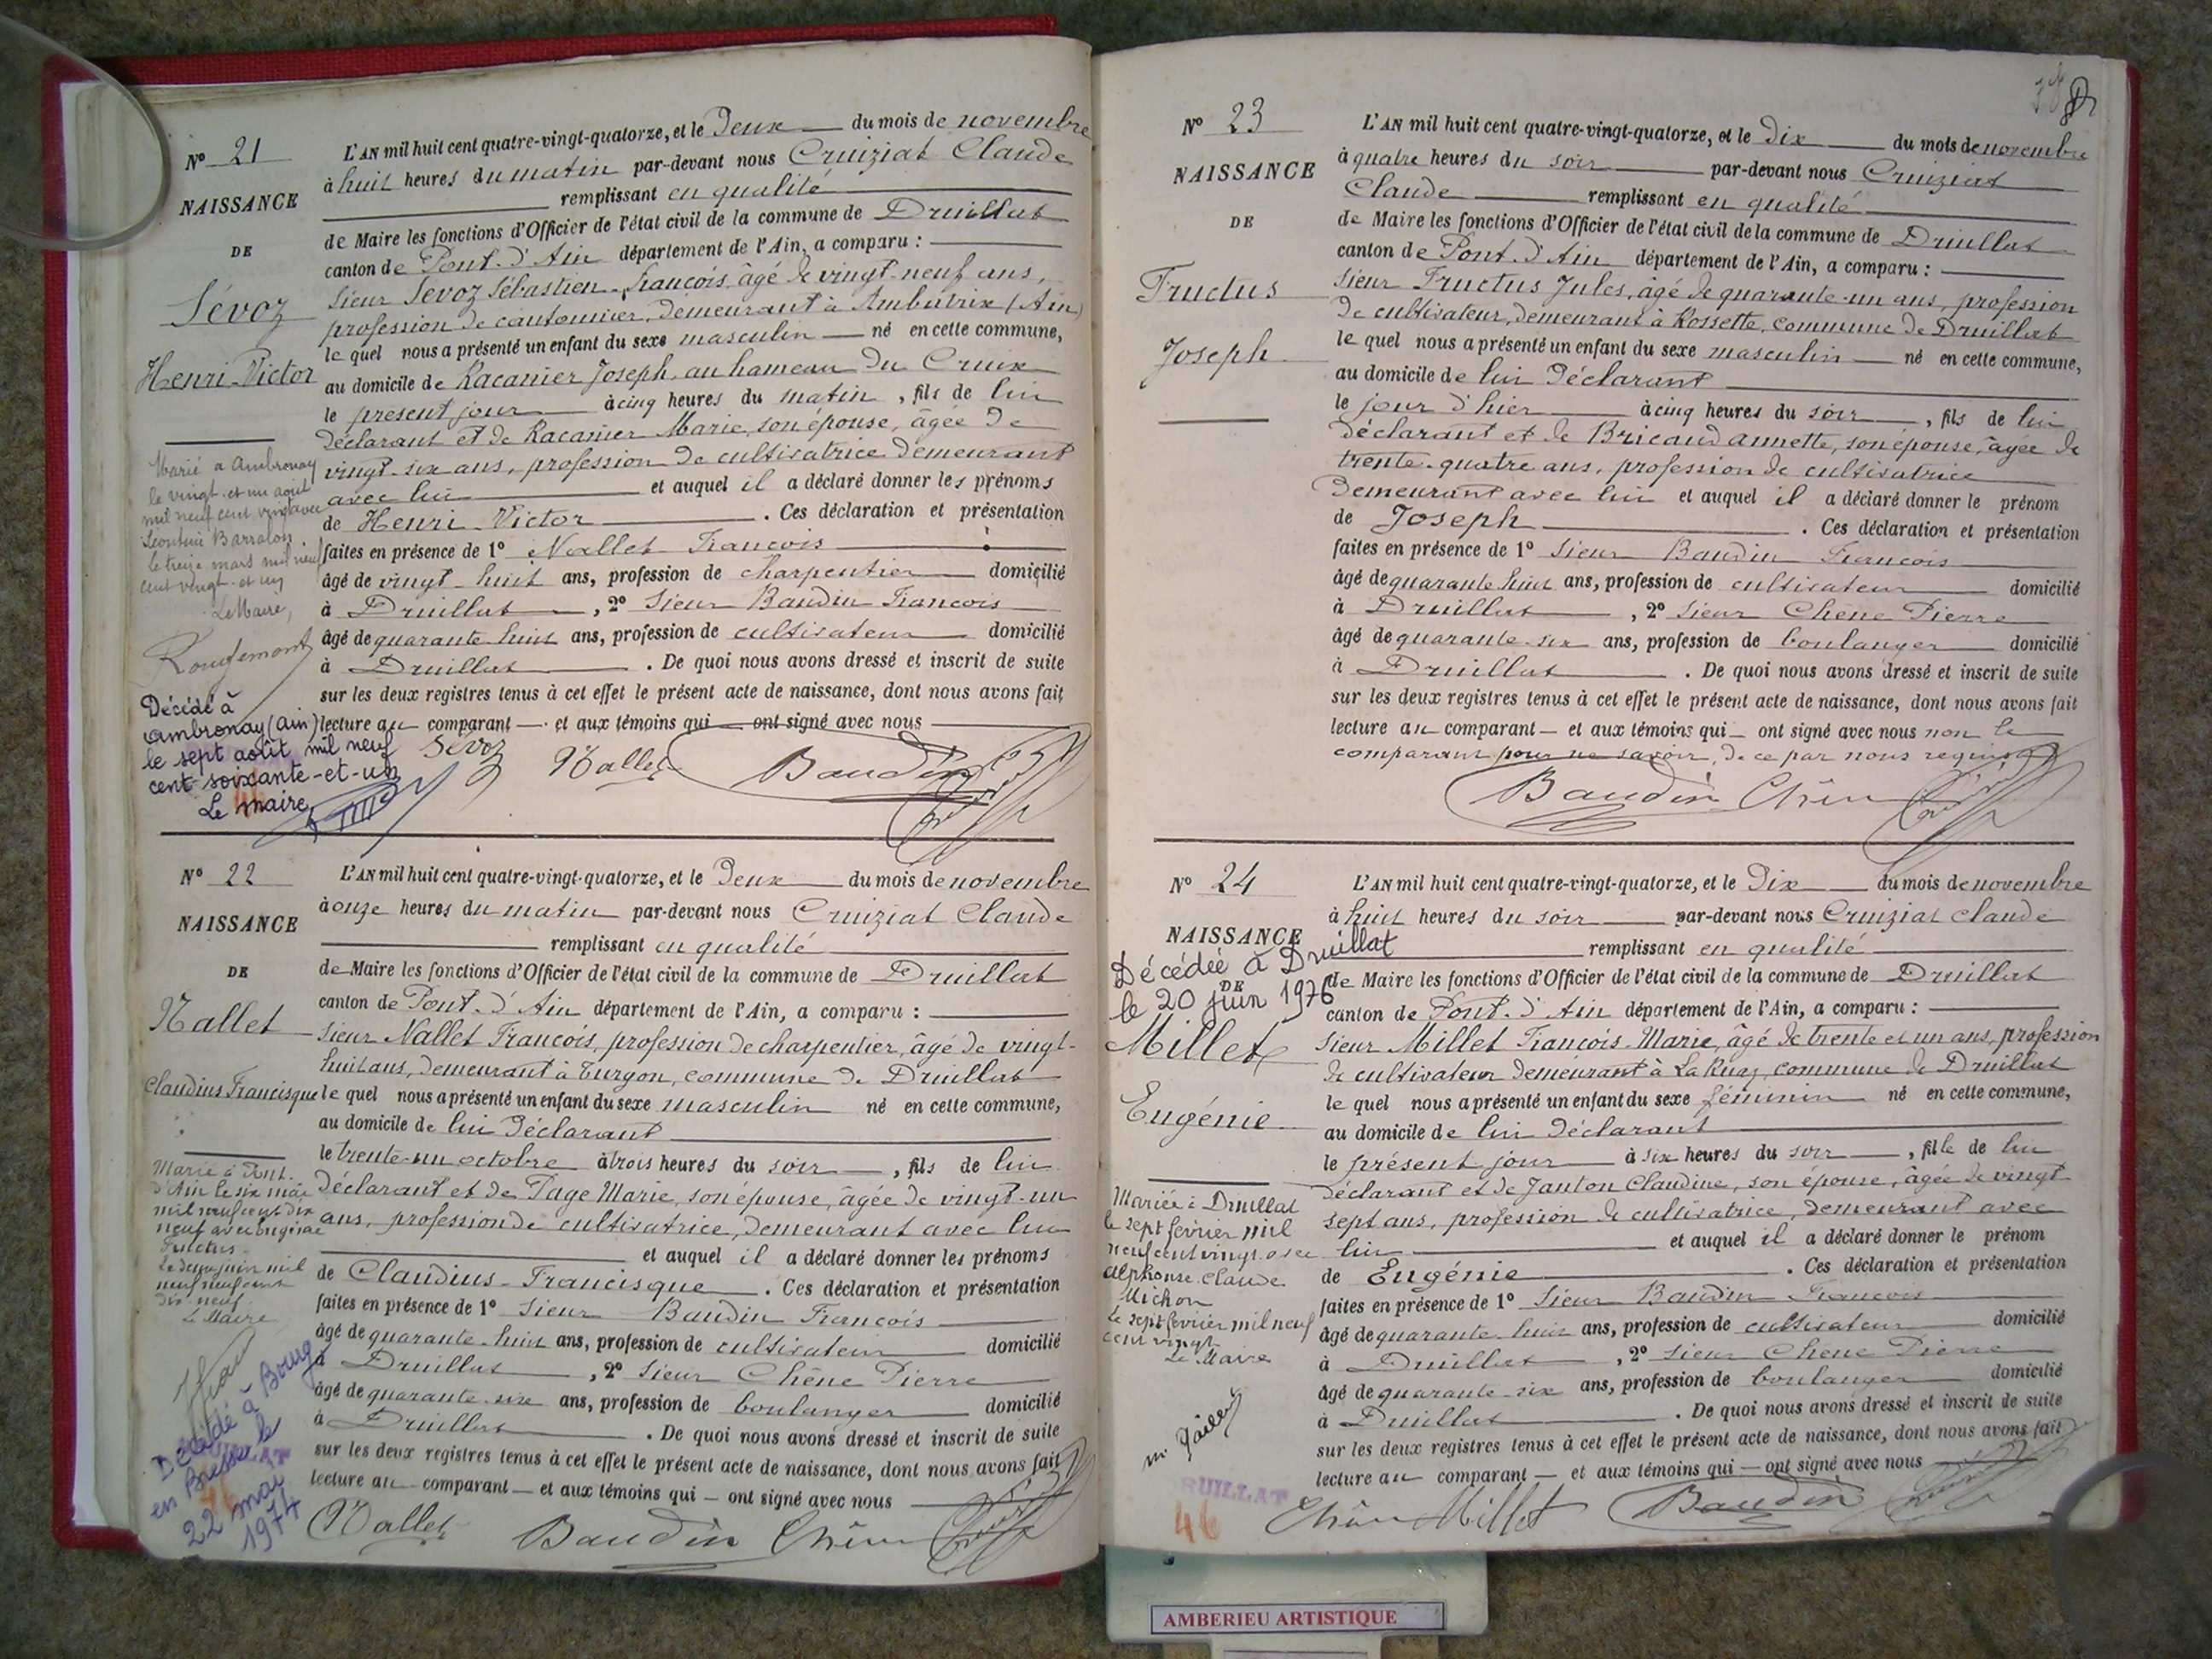 Nº 21
NAISSANCE
DE
Sévoz
Henri-Victor
L'AN mil huit cent quatre-vingt-quatorze, et le Deux du mois de novembre
à huit heures du matin par-devant nous Cruiziat Claude
remplissant en qualité
de Maire les fonctions d'Officier de l'état civil de la commune de Druillat
canton de Pont-d'Ain département de l'Ain, a comparu :
Sieur Sévoz Sébastien-François, âgé de vingt-neuf ans,
profession de cantonnier, demeurant à Ambutrix (Ain)
le quel nous a présenté un enfant du sexe masculin né en cette commune,
au domicile de Racanier Joseph, au hameau du Cruix
le présent jour à cinq heures du matin, fils de lui
déclarant et de Racanier Marie, son épouse, âgée de
vingt-six ans, profession de cultivatrice demeurant
avec lui et auquel il a déclaré donner les prénoms
de Henri-Victor. Ces déclaration et présentation
faites en présence de 1º Nallet François
âgé de vingt-huit ans, profession de charpentier domicilié
à Druillat, 2º Sieur Baudin François
âgé de quarante huit ans, profession de cultivateur domicilié
à Druillat. De quoi nous avons dressé et inscrit de suite
sur les deux registres tenus à cet effet le présent acte de naissance, dont nous avons fait
lecture au comparant et aux témoins qui ont signé avec nous
Sévoz Nallet Baudin
Marié à Ambronay
le vingt-et-un août
mil neuf cent vingt avec
Léontine Barralon.
le treize mars mil neuf
cent vingt-et-un
Le Maire,
Décédé à
Ambronay (Ain)
le sept août mil neuf
cent soixante-et-un
Le maire
Nº 22
NAISSANCE
DE
Nallet
Claudius Francisque
L'AN mil huit cent quatre-vingt-quatorze, et le Deux du mois de novembre
à onze heures du matin par-devant nous Cruiziat Claude
remplissant en qualité
de Maire les fonctions d'Officier de l'état civil de la commune de Druillat
canton de Pont-d'Ain département de l'Ain, a comparu :
Sieur Nallet François, profession de charpentier, âgé de vingt-
huit ans, demeurant à Turgon, commune de Druillat
le quel nous a présenté un enfant du sexe masculin né en cette commune,
au domicile de lui déclarant
le trente-un octobre à trois heures du soir, fils de lui
déclarant et de Page Marie, son épouse, âgée de vingt-un
ans, profession de cultivatrice, demeurant avec lui
et auquel il a déclaré donner les prénoms
de Claudius-Francisque. Ces déclaration et présentation
faites en présence de 1º Sieur Baudin François
âgé de quarante-huit ans, profession de cultivateur domicilié
à Druillat, 2º Sieur Chêne Pierre
âgé de quarante-six ans, profession de boulanger domicilié
à Druillat. De quoi nous avons dressé et inscrit de suite
sur les deux registres tenus à cet effet le présent acte de naissance, dont nous avons fait
lecture au comparant et aux témoins qui ont signé avec nous
Nallet Baudin Chêne
Marié à Pont-
d'Ain le six mai
mil neuf cent dix
neuf avec
Fructus.
Le deux juin mil
neuf neuf cent
dix-neuf.
Le Maire
Décédé à Bourg
en Bresse le
22 mai
1974
Nº 23
NAISSANCE
DE
Fructus
Joseph
L'AN mil huit cent quatre-vingt-quatorze, et le Dix du mois de novembre
à quatre heures du soir par-devant nous Cruiziat
Claude remplissant en qualité
de Maire les fonctions d'Officier de l'état civil de la commune de Druillat
canton de Pont-d'Ain département de l'Ain, a comparu :
Sieur Fructus Jules, âgé de quarante-un ans, profession
de cultivateur, demeurant à Rossette, commune de Druillat
le quel nous a présenté un enfant du sexe masculin né en cette commune,
au domicile de lui déclarant
le jour d'hier à cinq heures du soir, fils de lui
déclarant et de Bricaud Annette, son épouse, âgée de
trente-quatre ans, profession de cultivatrice
demeurant avec lui et auquel il a déclaré donner le prénom
de Joseph. Ces déclaration et présentation
faites en présence de 1º Sieur Baudin François
âgé de quarante huit ans, profession de cultivateur domicilié
à Druillat, 2º Sieur Chêne Pierre
âgé de quarante-six ans, profession de boulanger domicilié
à Druillat. De quoi nous avons dressé et inscrit de suite
sur les deux registres tenus à cet effet le présent acte de naissance, dont nous avons fait
lecture au comparant et aux témoins qui ont signé avec nous non le
comparant pour ne savoir, de ce par nous requis
Baudin Chêne
Nº 24
NAISSANCE
DE
Décédée à Druillat
le 20 juin 1976
Millet
Eugénie
L'AN mil huit cent quatre-vingt-quatorze, et le Dix du mois de novembre
à huit heures du soir par-devant nous Cruiziat Claude
remplissant en qualité
de Maire les fonctions d'Officier de l'état civil de la commune de Druillat
canton de Pont-d'Ain département de l'Ain, a comparu :
Sieur Millet François-Marie, âgé de trente et un ans, profession
de cultivateur demeurant à La Ruaz, commune de Druillat
le quel nous a présenté un enfant du sexe féminin né en cette commune,
au domicile de lui déclarant
le présent jour à six heures du soir, fille de lui
déclarant et de Janton Claudine, son épouse, âgée de vingt
sept ans, profession de cultivatrice, demeurant avec
lui et auquel il a déclaré donner le prénom
de Eugénie. Ces déclaration et présentation
faites en présence de 1º Sieur Baudin François
âgé de quarante huit ans, profession de cultivateur domicilié
à Druillat, 2º Sieur Chêne Pierre
âgé de quarante-six ans, profession de boulanger domicilié
à Druillat. De quoi nous avons dressé et inscrit de suite
sur les deux registres tenus à cet effet le présent acte de naissance, dont nous avons fait
lecture au comparant et aux témoins qui ont signé avec nous
Chêne Millet Baudin
Mariée à Druillat
le sept février mil
neuf cent vingt avec
Alphonse Claude
Michon
Le sept février mil neuf
cent vingt
Le Maire
RUILLAT
46
AMBERIEU ARTISTIQUE